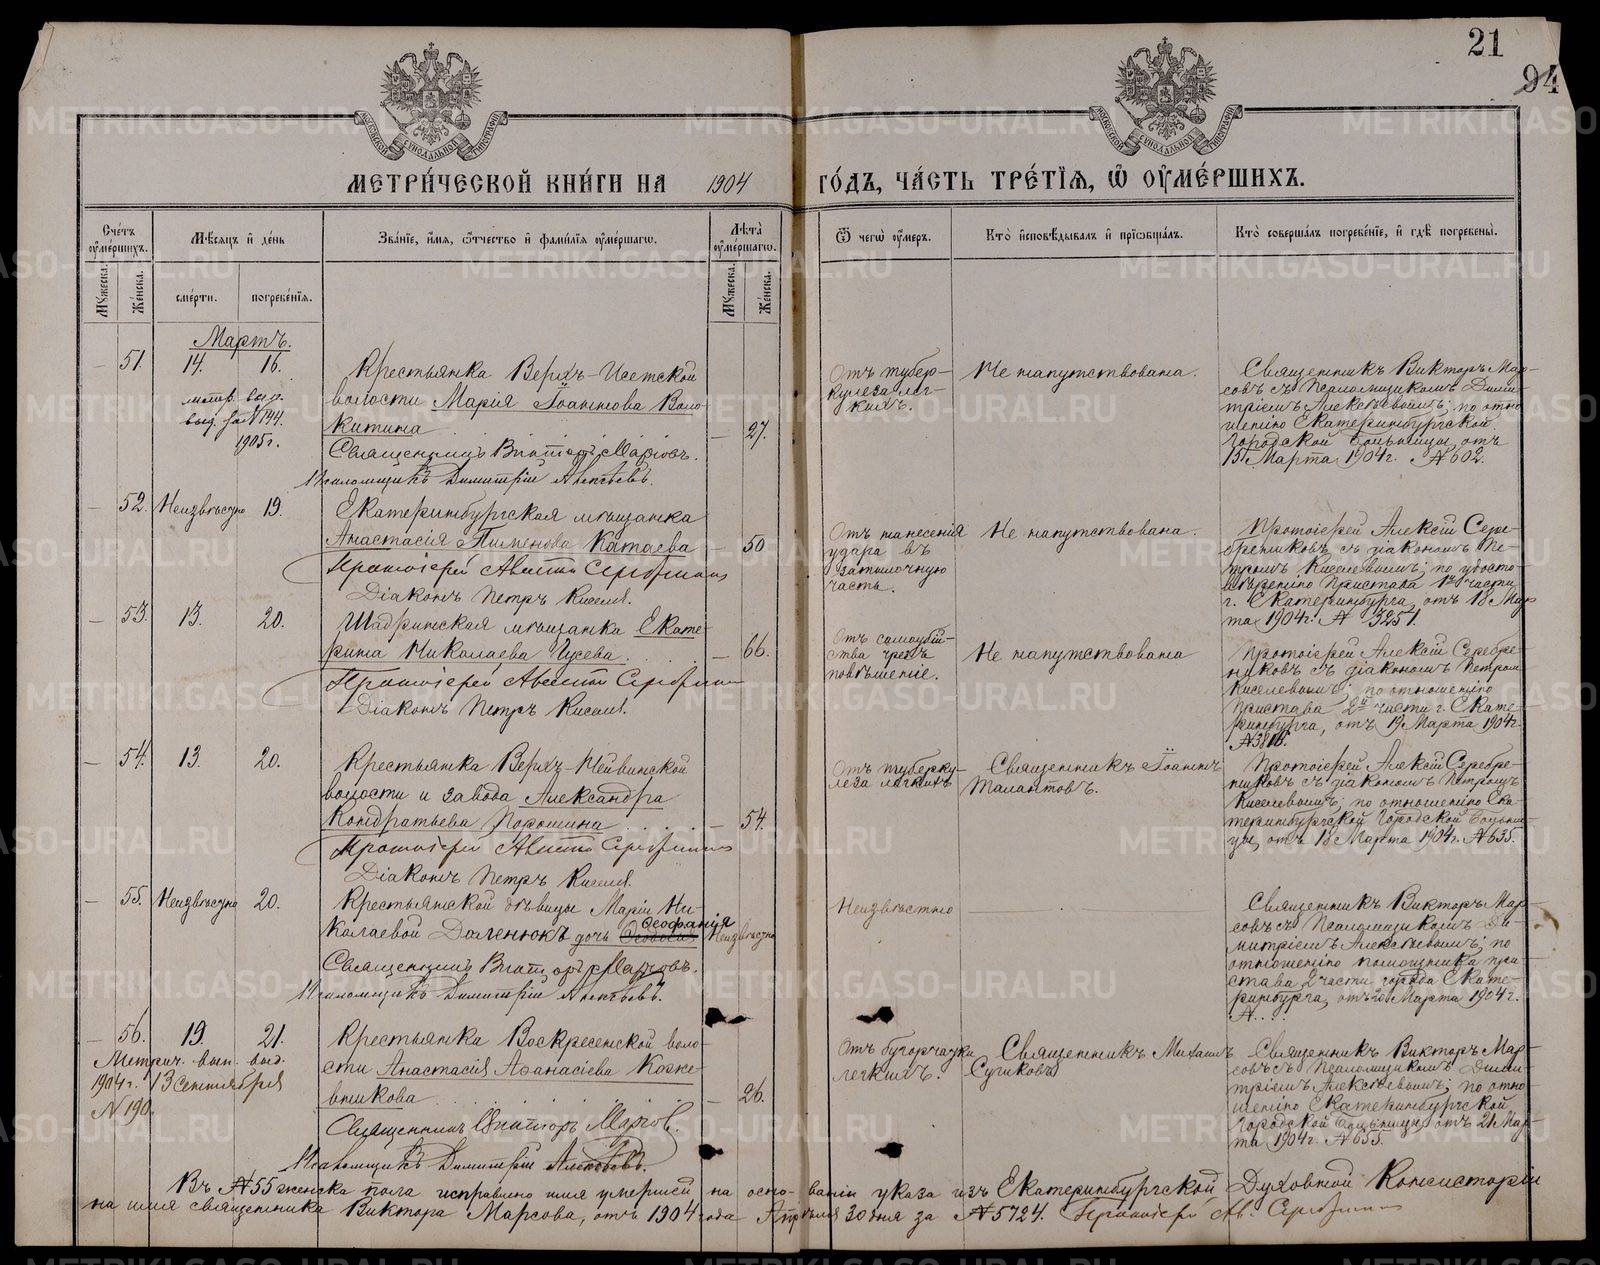 21
94
МОСКОВСКОЙ СѴНОДАЛЬНОЙ ТИПОГРАФІИ
МОСКОВСКОЙ СѴНОДАЛЬНОЙ ТИПОГРАФІИ
МЕТРИ́ЧЕСКОЙ КНИ́ГИ НА 1904 ГО́ДЪ, ЧА́СТЬ ТРЕ́ТІѦ, Ѿ ОУ҆МЕ́РШИХЪ.
Сче́тъ оу҆ме́ршихъ.
Мѣ́сяцъ и҆ де́нь
Зва́нїе, и҆́мѧ, ѻ҆́тчество и҆ фами́лїѧ оу҆ме́ршагѡ.
Лѣ́та оу҆ме́ршагѡ.
Ѿ чегѡ̀ оу҆́меръ.
Кто̀ и҆сповѣ́дывалъ и҆ прїѡбща́лъ.
Кто̀ соверша́лъ погребе́нїе, и҆ гдѣ̀ погребены̀.
Мꙋ́жеска.
Же́нска.
сме́рти.
погребе́нїѧ.
Мꙋ́жеска.
Же́нска.
Мартъ.
— 51. 14. 16.
метр. вып.
выд. за № 144.
1905 г.
Крестьянка Верхъ-Исетской
волости Марія Іоаннова Воло-
китина — 27.
Священникъ Викторъ Марсовъ.
Псаломщикъ Димитрій Алексѣевъ.
Отъ тубер-
кулеза лег-
кихъ.
Не напутствована.
Священникъ Викторъ Мар-
совъ съ Псаломщикомъ Дими-
тріемъ Алексѣевымъ; по отно-
шенію Екатеринбургской
Городской больницы, отъ
15 Марта 1904 г. № 602.
— 52. Неизвѣстно 19.
Екатеринбургская мѣщанка
Анастасія Пименова Катаева — 50
Протоіерей Алексій Серебрениковъ
Діаконъ Петръ Киселевъ.
Отъ нанесенія
удара въ
затылочную
часть.
Не напутствована.
Протоіерей Алексій Сере-
брениковъ съ діакономъ Пе-
тромъ Киселевымъ; по удосто-
вѣренію Пристава 1й части
г. Екатеринбурга, отъ 18 Мар
та 1904 г. № 3251.
— 53. 13. 20.
Шадринская мѣщанка Екате-
рина Николаева Гусева — 66.
Протоіерей Алексій Серебрениковъ
Діаконъ Петръ Киселевъ.
Отъ самоубій-
ства чрезъ
повѣшеніе.
Не напутствована
Протоіерей Алексій Серебре-
никовъ съ діакономъ Петромъ
Киселевымъ; по отношенію
Пристава 2й части г. Екате-
ринбурга, отъ 19 Марта 1904 г.
— 54. 13. 20.
Крестьянка Верхъ-Нейвинской
волости и завода Александра
Кондратьева Порошина — 54.
Протоіерей Алексій Серебрениковъ
Діаконъ Петръ Киселевъ.
Отъ туберку-
леза легкихъ
Священникъ Іоаннъ
Талантовъ.
Протоіерей Алексій Серебре-
никовъ съ діакономъ Петромъ
Киселевымъ, по отношенію Ека-
теринбургской Городской больни-
цы, отъ 18 Марта 1904 г. № 635.
— 55. Неизвѣстно 20.
Крестьянской дѣвицы Маріи Ни-
Ѳеофанія
колаевой Даленюкъ дочь Ѳеодосія Неизвѣстно
Священникъ Викторъ Марсовъ.
Псаломщикъ Димитрій Алексѣевъ.
Неизвѣстно
Священникъ Викторъ Мар-
совъ съ Псаломщикомъ Ди-
митріемъ Алексѣевымъ; по
отношенію помощника при-
става 2 части города Екате-
ринбурга, отъ 20 Марта 1904 г.
№ . . .
— 56. 19. 21.
Метрич. вып. выд.
1904 г. 13 Сентября
№ 190.
Крестьянка Воскресенской воло-
сти Анастасія Аѳанасіева Коже-
вникова — 26.
Священникъ Викторъ Марсовъ.
Псаломщикъ Димитрій Алексѣевъ.
Отъ бугорчатки
легкихъ.
Священникъ Михаилъ
Сучковъ
Священникъ Викторъ Мар-
совъ съ Псаломщикомъ Дими-
тріемъ Алексѣевымъ; по отно-
шенію Екатеринбургской
Городской больницы отъ 21 Мар
та 1904 г. № 655.
Въ № 55 женска пола исправлено имя умершей на осно-ваніи указа изъ Екатеринбургской Духовной Консисторіи
на имя священника Виктора Марсова, отъ 1904 года Апрѣля 30 дня за № 5724. Протоіерей Ал. Серебрениковъ
METRIKI.GASO-URAL.RU